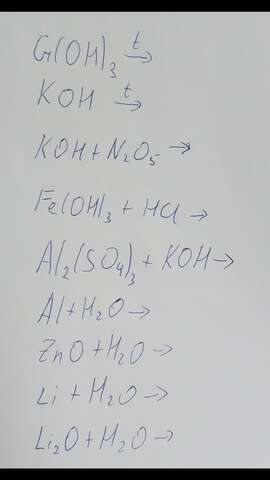 Cr(OH)₃ →ᵗ
KOH →ᵗ
KOH + N₂O₅ →
Fe(OH)₃ + HCl →
Al₂(SO₄)₃ + KOH →
Al + H₂O →
ZnO + H₂O →
Li + H₂O →
Li₂O + H₂O →